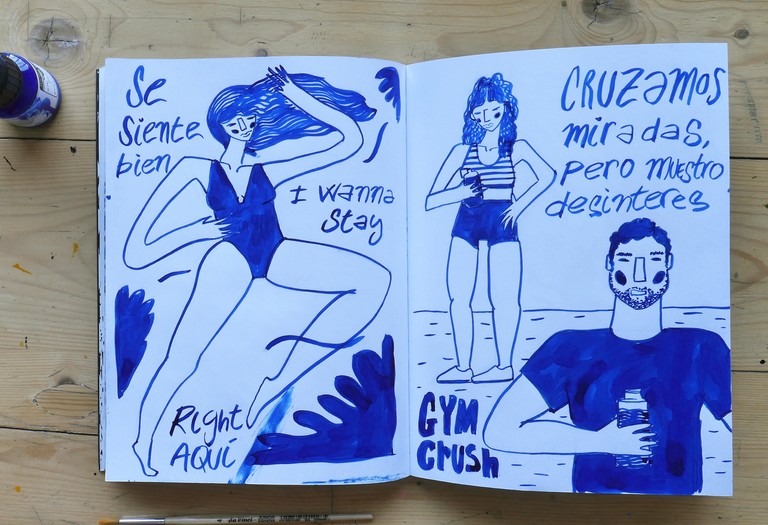 Se
Siente
bien
I wanna
Stay
Right
AQUÍ
CRUZAMOS
miradas,
pero muestro
desinteres
GYM
Crush
da Vinci